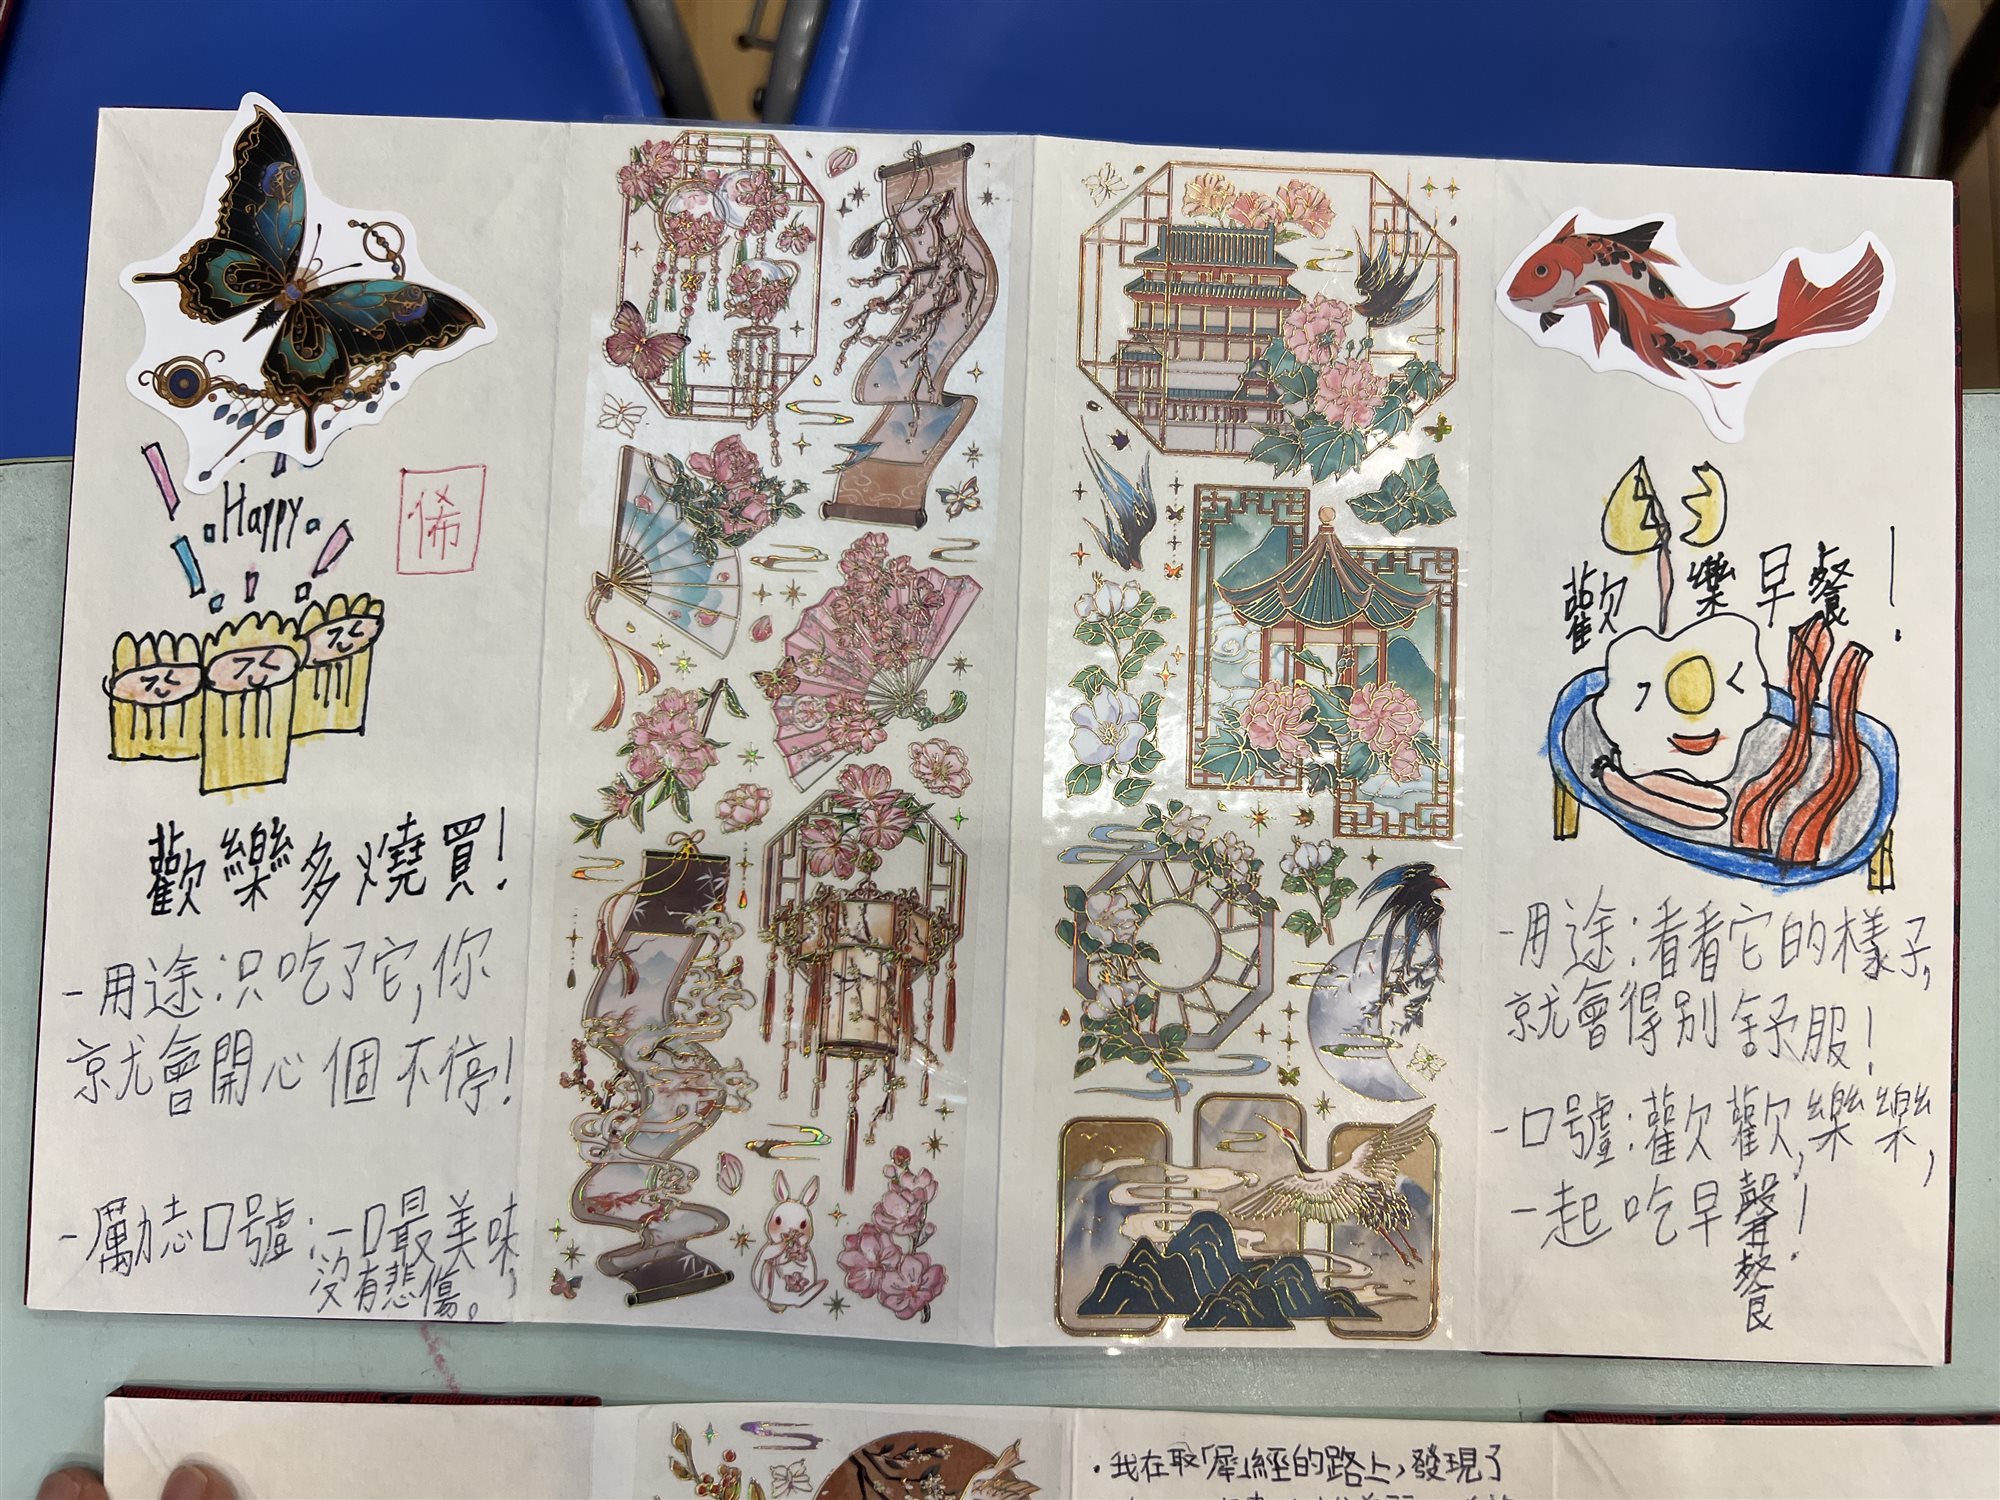 Happy
俙
歡樂多燒買！
-用途：只吃了它，你
就會開心個不停！
-厲志口號：一口最美味，
沒有悲傷。
歡樂早餐！
-用途：看看它的樣子，
就會得別舒服！
-口號：歡歡，樂樂，
一起吃早！
餐
·我在取「犀」經的路上，發現了